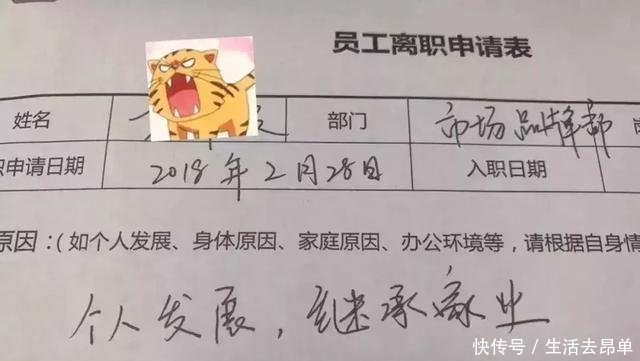 员工离职申请表
姓名 部门 市场品牌部
职申请日期 2018年2月28日 入职日期
原因：（如个人发展、身体原因、家庭原因、办公环境等，请根据自身情
个人发展，继承家业
快传号／生活去昂单